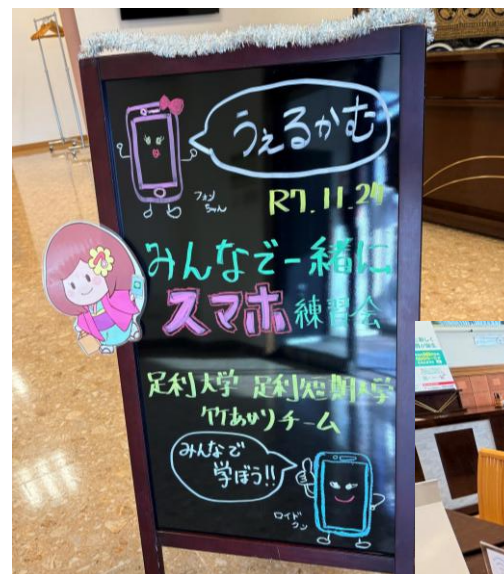 うぇるかむ
フォンちゃん
R7.11.29
みんなで一緒に
スマホ練習会
足利大学 足利短期大学
竹あかりチーム
みんなで
学ぼう!!
ロイドクン